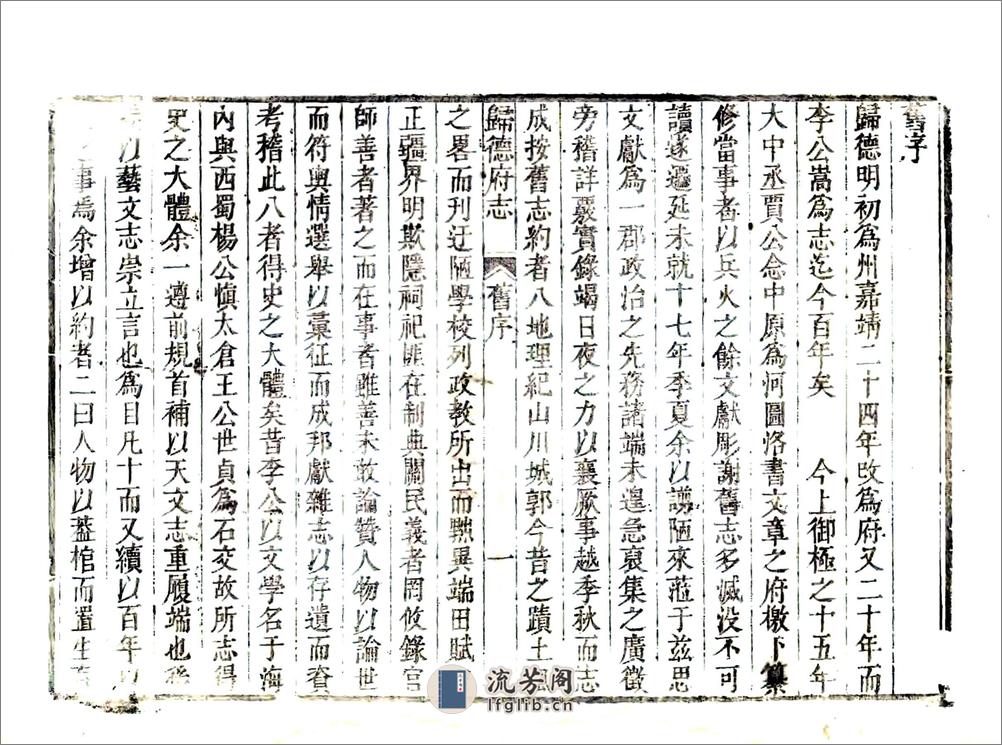 舊序
歸德明初為州嘉靖二十四年改為府又二十年而
李公嵩為志迄今百年矣　今上御極之十五年
大中丞賈公念中原為河圖洛書文章之府檄下纂
修當事者以兵火之餘文獻彫謝舊志多滅没不可
讀遂遷延未就十七年季夏余以謭陋來蒞于茲思
文獻為一郡政治之先務諸端未遑急裒集之廣徵
旁稽詳覈實錄竭日夜之力以襄厥事越季秋而志
成按舊志約者八地理紀山川城郭今昔之蹟土
歸德府志　舊序　一
之畧而刊迂陋學校列政教所出而黜異端田賦
正疆界明欺隱祠祀匪在制典關民義者罔攸錄官
師善者著之而在事者雖善未敢論贊人物以論世
而符輿情選舉以彙征而成邦獻雜志以存遺而資
考稽此八者得史之大體矣昔李公以文學名于海
內與西蜀楊公慎太倉王公世貞為石交故所志得
史之大體余一遵前規首補以天文志重履端也
以藝文志崇立言也為目凡十而又續以百年
事焉余增以約者二曰人物以蓋棺而置生
流芳阁
lfglib.cn